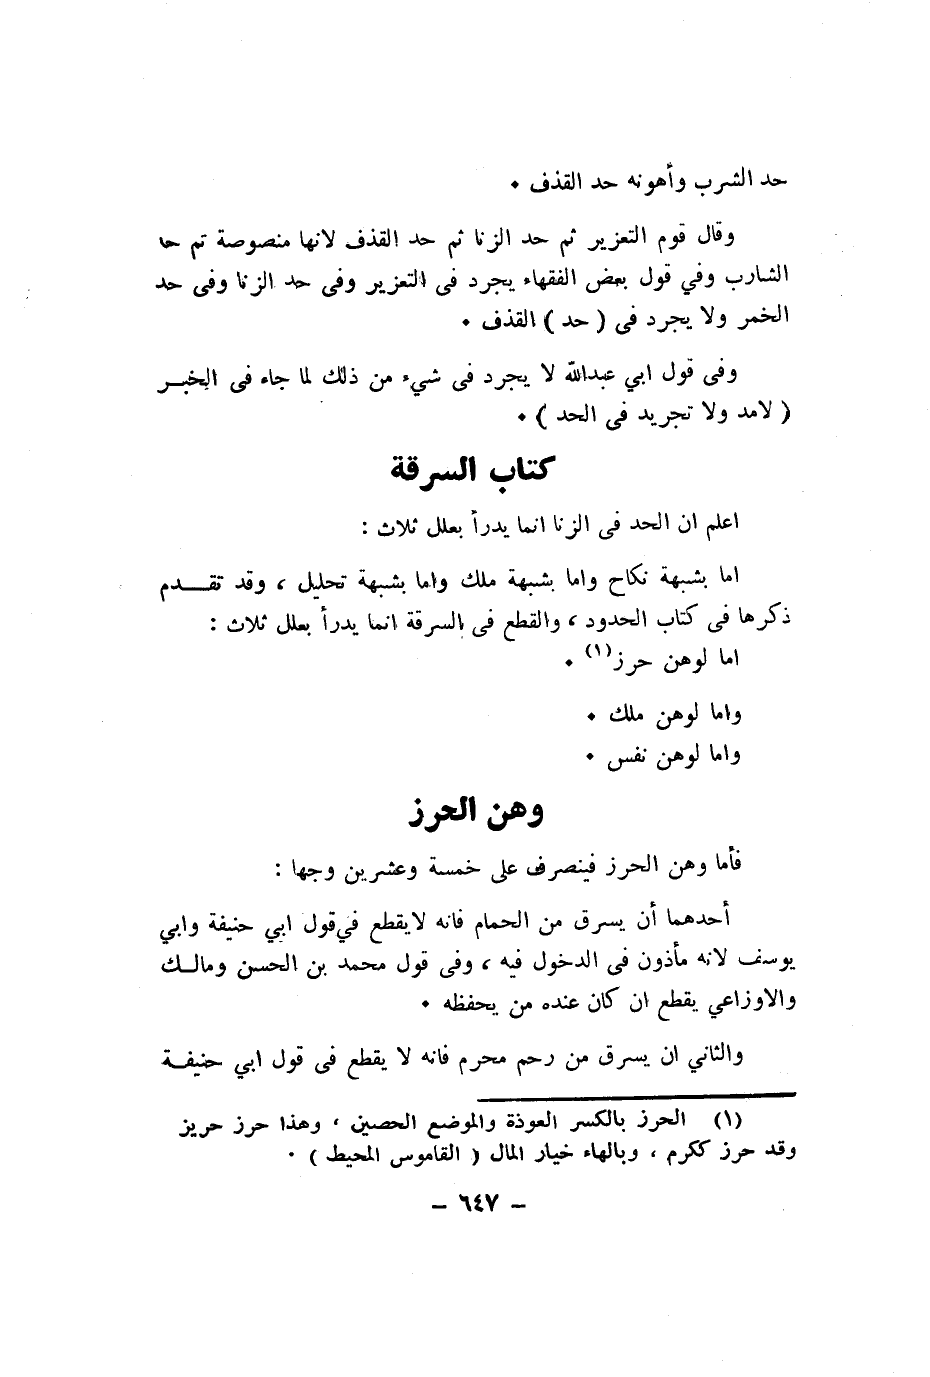 حد الشرب وأهونه حد القذف ٠
وقال قوم التعزير ثم حد الزنا ثم حد القذف لانها منصوصة تم حا
الشارب وفي قول بعض الفقهاء يجرد فى التعزير وفى حد الزنا وفى حد
الخمر ولا يجرد فى ( حد ) القذف ٠
وفى قول ابي عبدالله لا يجرد فى شيء من ذلك لما جاء فى الخبـر
( لامد ولا تجريد فى الحد ) ٠
كتاب السرقة
اعلم ان الحد فى الزنا انما يدرأ بعلل ثلاث :
اما بشبهة نكاح واما بشبهة ملك واما بشبهة تحليل ، وقد تقـــدم
ذكرها فى كتاب الحدود ، والقطع فى السرقة انما يدرأ بعلل ثلاث :
اما لوهن حرز(١) ٠
واما لوهن ملك ٠
واما لوهن نفس ٠
وهن الحرز
فأما وهن الحرز فينصرف على خمسة وعشرين وجها :
أحدهما أن يسرق من الحمام فانه لايقطع في قول ابي حنيفة وابي
يوسف لانه مأذون فى الدخول فيه ، وفى قول محمد بن الحسن ومالـك
والاوزاعي يقطع ان كان عنده من يحفظه ٠
والثاني ان يسرق من رحم محرم فانه لا يقطع فى قول ابي حنيفـة
(١) الحرز بالكسر العوذة والموضع الحصين ، وهذا حرز حريز
وقد حرز ككرم ، وبالهاء خيار المال ( القاموس المحيط ) ٠
– ٦٤٧ –